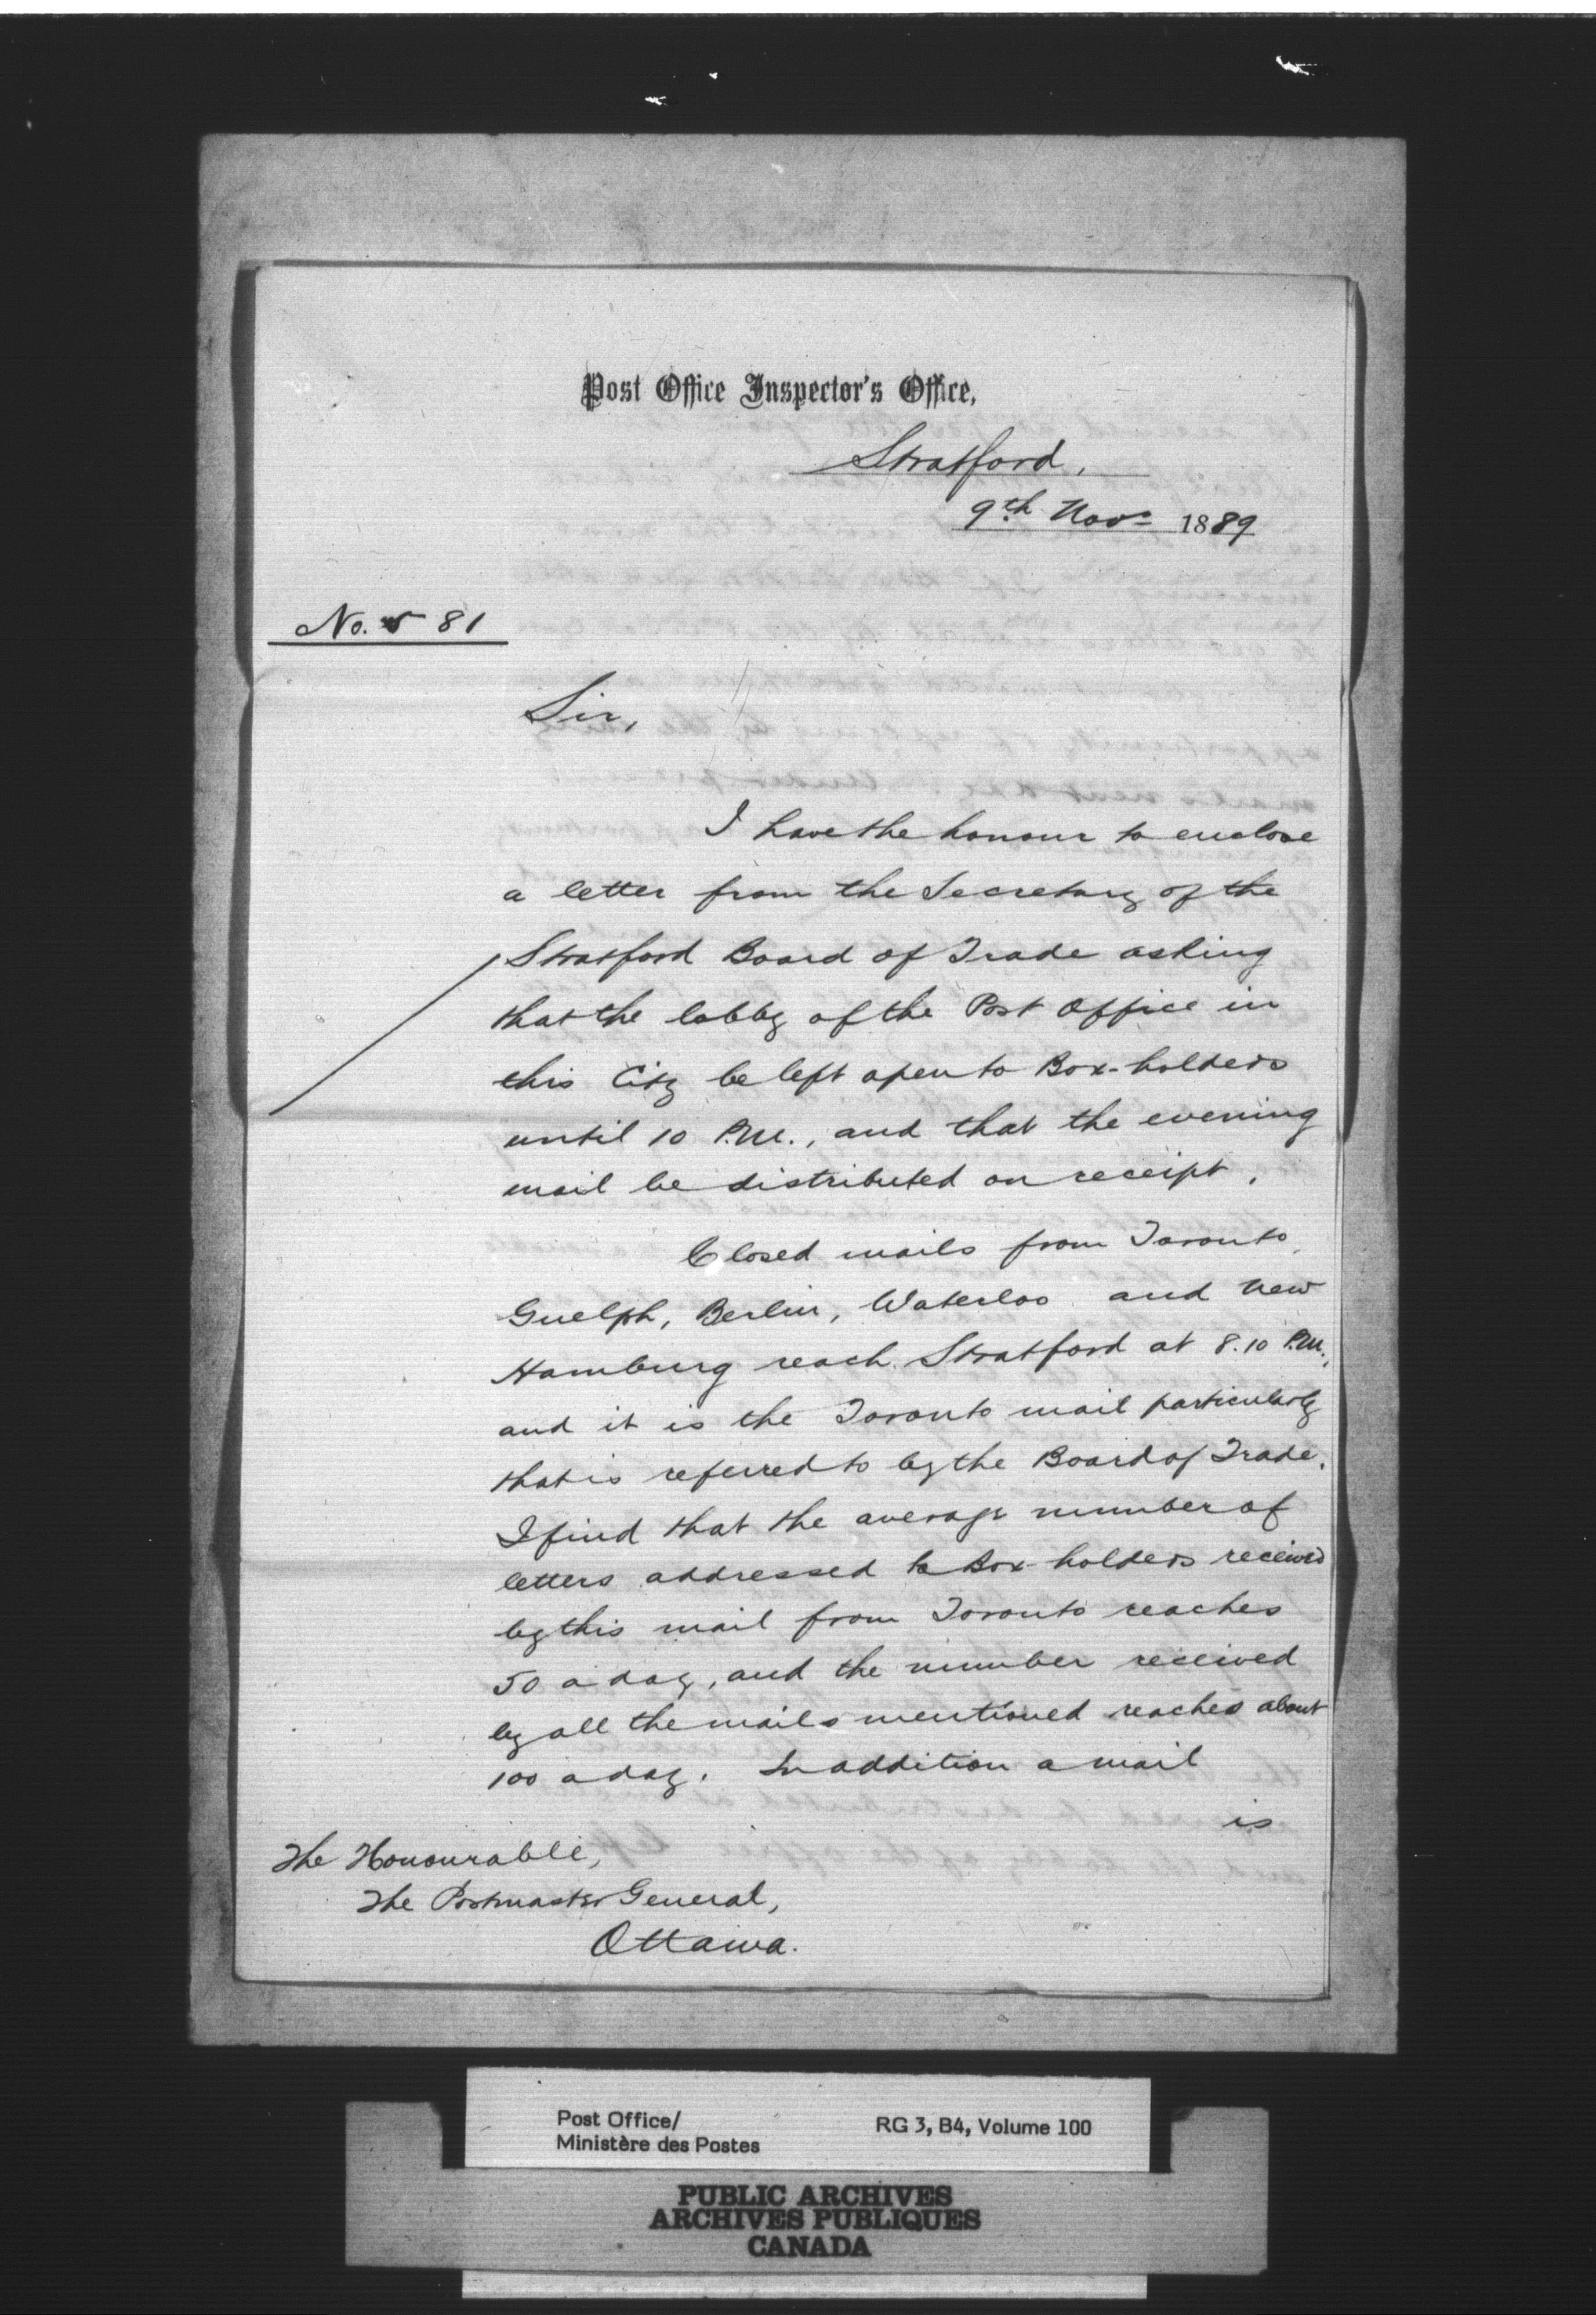 Post Office Inspector's Office,
Stratford,
9th Nov. 1889
No. 581
Sir,
I have the honour to enclose
a letter from the Secretary of the
Stratford Board of Trade asking
that the lobby of the Post Office in
this City be left open to Box-holders
until 10 P.M., and that the evening
mail be distributed on receipt.
Closed mails from Toronto,
Guelph, Berlin, Waterloo and New
Hamburg reach Stratford at 8.10 P.M.,
and it is the Toronto mail particularly
that is referred to by the Board of Trade.
I find that the average number of
letters addressed to Box-holders received
by this mail from Toronto reaches
50 a day, and the number received
by all the mails mentioned reaches about
100 a day. In addition a mail
is
The Honourable,
The Postmaster General,
Ottawa.
Post Office/
Ministère des Postes
RG 3, B4, Volume 100
PUBLIC ARCHIVES
ARCHIVES PUBLIQUES
CANADA